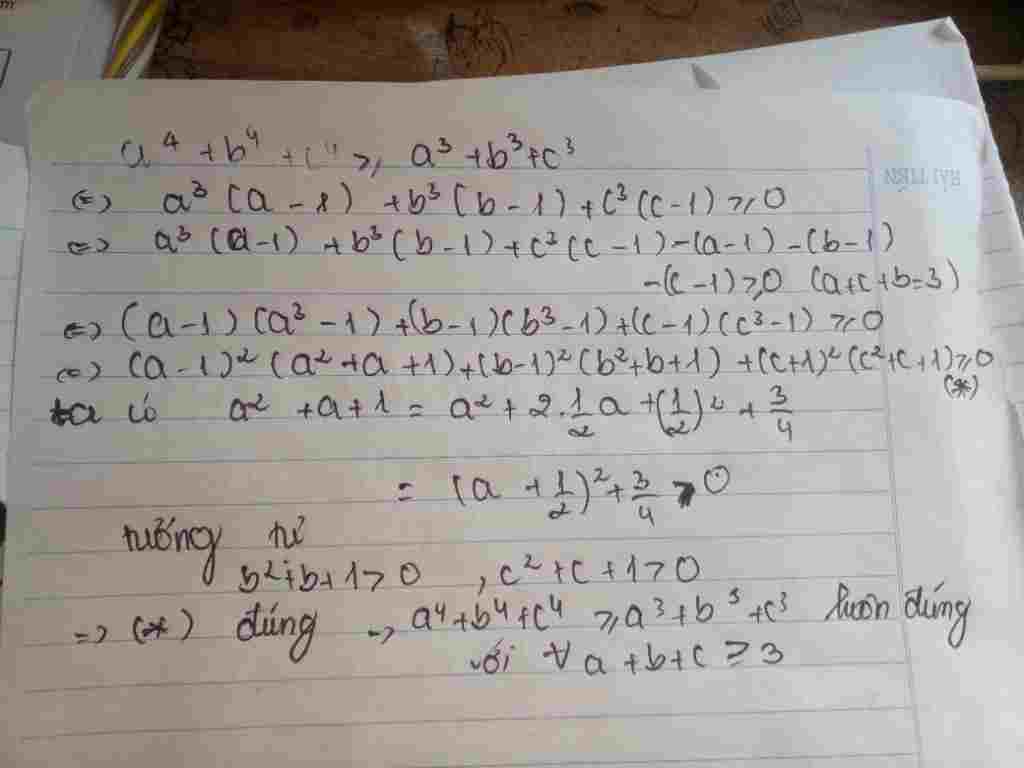 a⁴ + b⁴ + c⁴ ≥, a³ + b³ + c³
<=> a³ (a - 1) + b³ (b - 1) + c³ (c - 1) ≥ 0
<=> a³ (a - 1) + b³ (b - 1) + c³ (c - 1) - (a - 1) - (b - 1)
- (c - 1) ≥ 0 (a + c + b = 3)
<=> (a - 1) (a³ - 1) + (b - 1) (b³ - 1) + (c - 1) (c³ - 1) ≥ 0
<=> (a - 1)² (a² + a + 1) + (b - 1)² (b² + b + 1) + (c + 1)² (c² + c + 1) ≥ 0
(*)
ta có a² + a + 1 = a² + 2.1/2 a + (1/2)² + 3/4
= (a + 1/2)² + 3/4 > 0
tưởng tử
b² + b + 1 > 0 , c² + c + 1 > 0
=> (*) đúng -> a⁴ + b⁴ + c⁴ ≥ a³ + b³ + c³ luôn đúng
với ∀ a + b + c ≥ 3